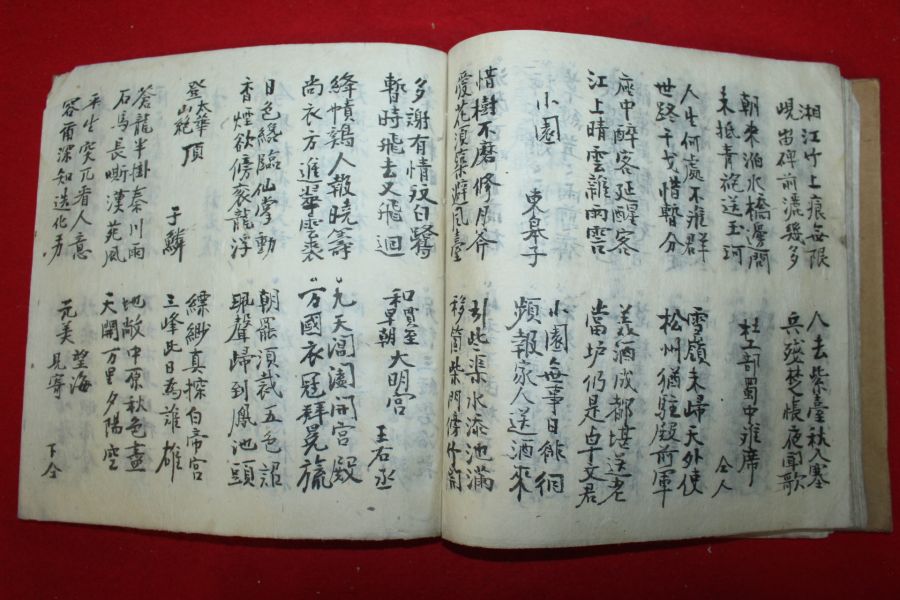 湘江竹上痕無限
峴留碑前灑幾多
人去紫臺秋入塞
兵殘楚帳夜聞歌
朝來泊水橋邊問
未抵青袍送玉珂
杜工部蜀中離席
仝人
人生何處不離群
世路干戈惜暫分
雪嶺未歸天外使
松州猶駐殿前軍
座中醉客延醒客
江上晴雲雜雨雲
美酒成都堪送老
當垆仍是卓文君
小園 東皋子
小園無事日徘徊
頻報家人送酒來
惜樹不磨修月斧
愛花須築避風臺
引些渠水添池滿
移箇柴門傍竹開
多謝有情双白鷺
暫時飛去又飛迴
和賈至
早朝大明宮 王右丞
絳幘鷄人報曉籌
尚衣方進翠雲裘
九天閶闔開宮殿
万國衣冠拜冕旒
日色纔臨仙掌動
香煙欲傍袞龍浮
朝罷須裁五色詔
珮聲歸到鳳池頭
登太華
山絶頂 于鱗
縹緲真探白帝宮
三峰此日為誰雄
蒼龍半掛秦川雨
石馬長嘶漢苑風
地敞中原秋色盡
天開万里夕陽空
平生突兀看人意
容爾深知造化功
望海
元美見寄 下仝